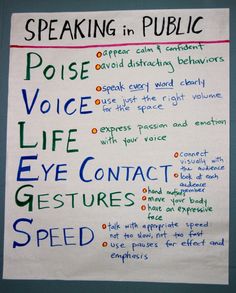 SPEAKING in PUBLIC
POISE
appear calm & confident
avoid distracting behaviors
VOICE
speak every word clearly
use just the right volume
for the space
LIFE
express passion and emotion
with your voice
EYE CONTACT
connect
visually with
the audience
look at each
audience
member
GESTURES
hand motions
move your body
have an expressive
face
SPEED
talk with appropriate speed
not too slow, not too fast
use pauses for effect and
emphasis